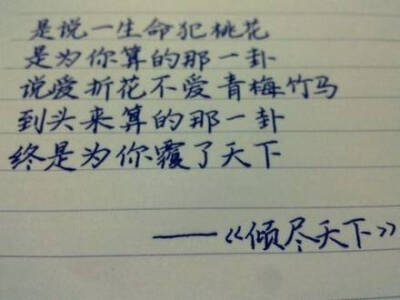 是说一生命犯桃花
是为你算的那一卦
说爱折花不爱青梅竹马
到头来算的那一卦
终是为你覆了天下
——《倾尽天下》